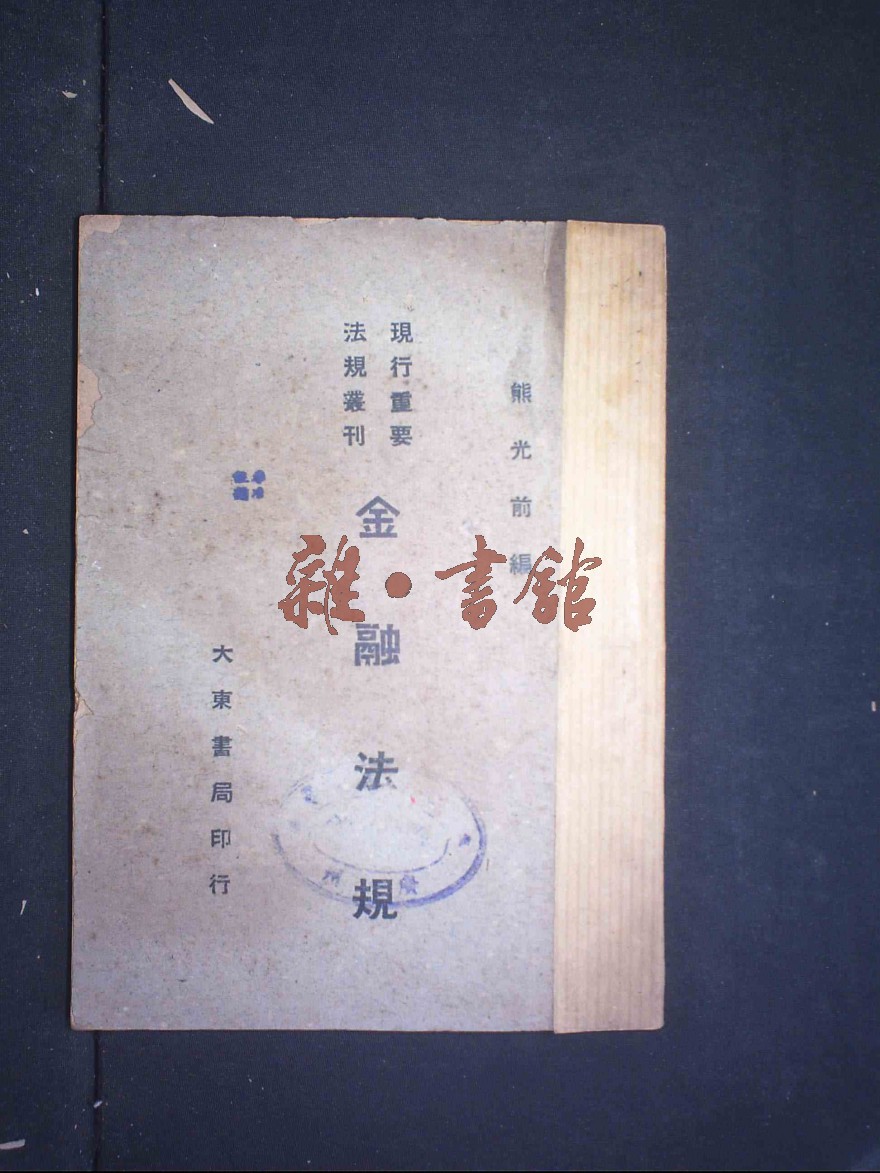 熊光前編
現行重要
法規叢刊
金融法規
大東書局印行
雜·書館